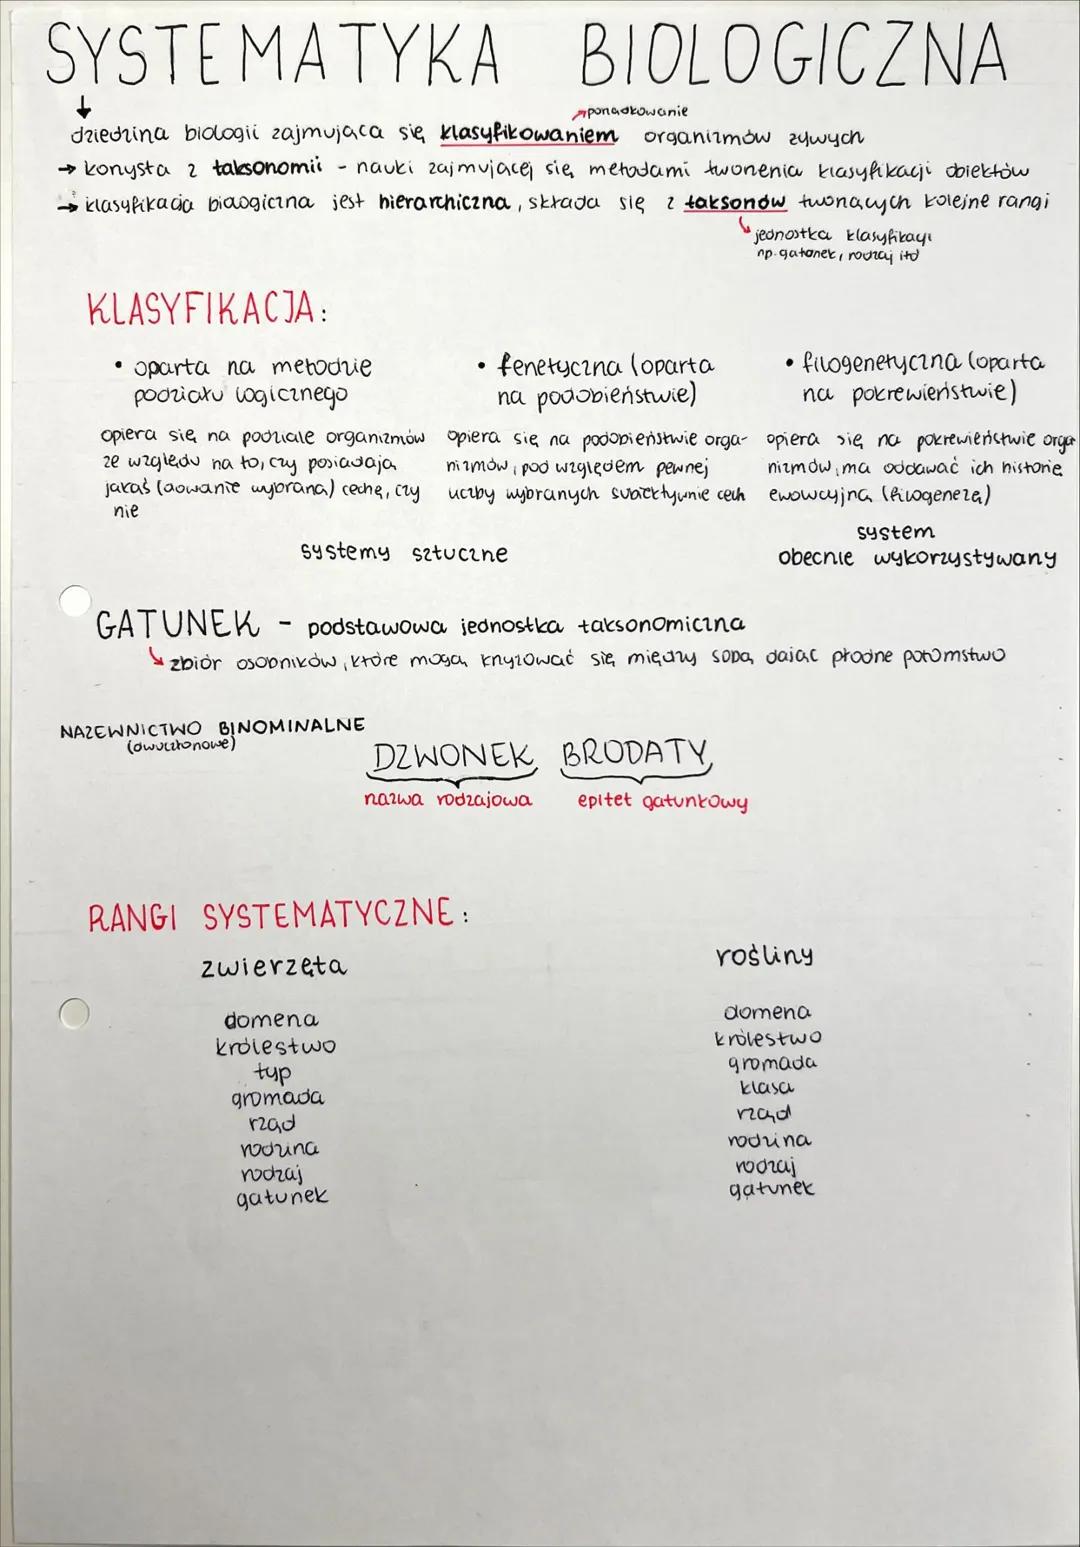 SYSTEMATYKA BIOLOGICZNA
ponadkowanie
dziedzina biologii zajmująca się klasyfikowaniem organizmów żywych
→ korzysta z taksonomii - nauki zajmującej się metodami tworzenia klasyfikacji obiektów
→ klasyfikacja biologiczna jest hierarchiczna, składa się z taksonów tworzących kolejne rangi
jednostka klasyfikacji
np. gatunek, rodzaj itd
KLASYFIKACJA:
• oparta na metodzie
podziału logicznego
opiera się na podziale organizmów
ze względu na to, czy posiadają
jakąś (dowolnie wybraną) cechę, czy
nie
• fenetyczna (oparta
na podobieństwie)
opiera się na podobieństwie orga-
nizmów, pod względem pewnej
liczby wybranych subiektywnie cech
systemy sztuczne
• filogenetyczna (oparta
na pokrewieństwie)
opiera się na pokrewieństwie orga
nizmów, ma oddawać ich historię
ewolucyjną (filogenezą)
system
obecnie wykorzystywany
GATUNEK - podstawowa jednostka taksonomiczna
zbiór osobników, które mogą krzyżować się między sobą dając płodne potomstwo
NAZEWNICTWO BINOMINALNE
(dwuczłonowe)
DZWONEK BRODATY
nazwa rodzajowa epitet gatunkowy
RANGI SYSTEMATYCZNE:
zwierzęta
domena
królestwo
typ
gromada
rząd
rodzina
rodzaj
gatunek
rośliny
domena
królestwo
gromada
klasa
rząd
rodzina
rodzaj
gatunek